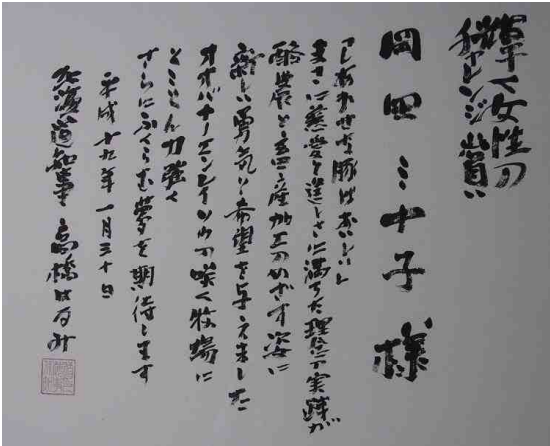 輝く女性の
チャレンジ賞
岡田ミナ子様
しあわせな豚はおいしい
まさに慈愛と逞しさに満ちた理念の実践が
酪農と畜産加工のめざす姿に
新しい勇気と希望を与えました
オオバナノエンレイソウの咲く牧場に
とことん力強く
さらにふくらむ夢を期待します
平成十九年一月三十日
北海道知事 高橋はるみ